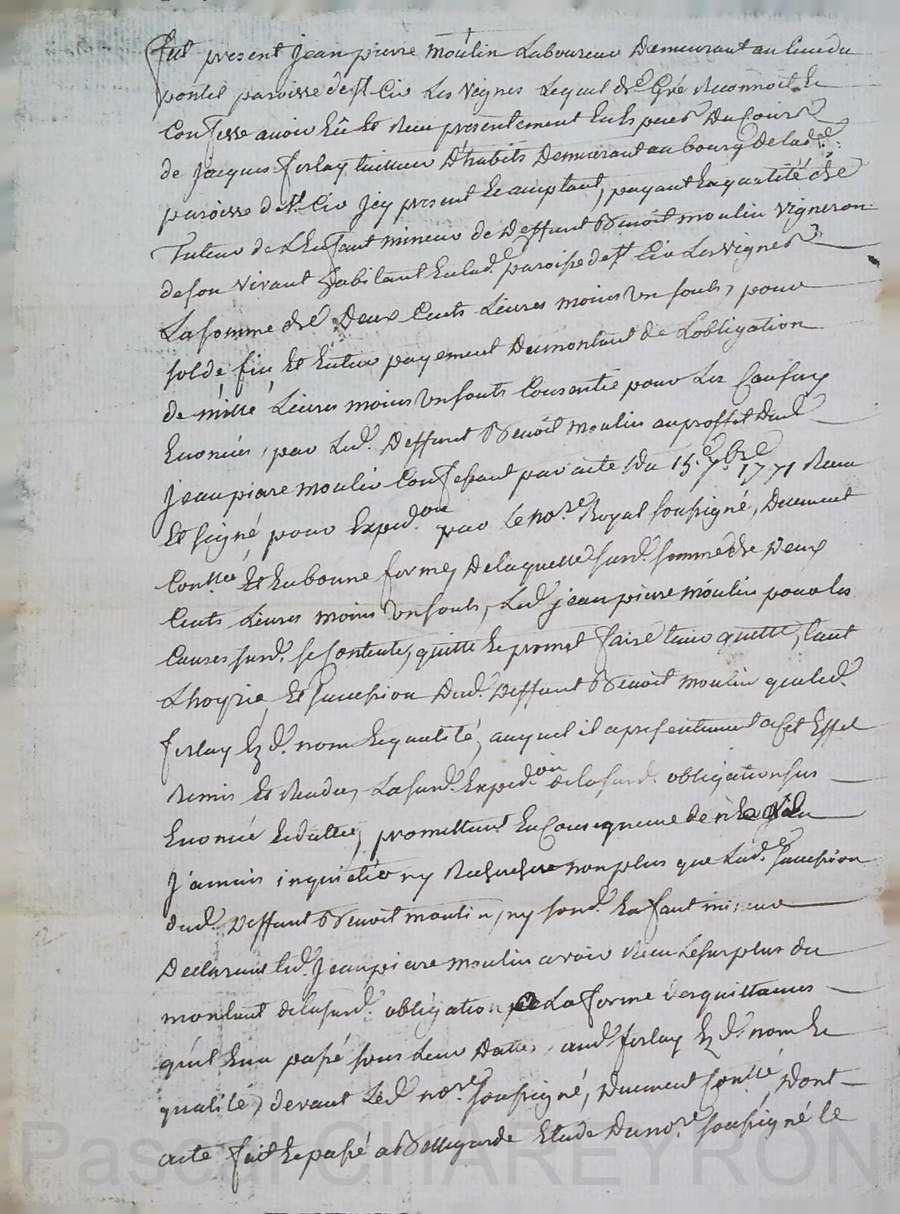 Fut present Jean pierre Moulin Laboureur Demeurant au lieu du
pontel paroisse de St Cir Les Vignes Lequel de Gré Reconnoit et
Confesse avoir Eû et Reçu presentement En Especes Du Cours
de Jacques ferlay tailleur D'habits Demeurant au bourg de lad.
paroisse de St Cir Icy present Et acceptant, payant En qualité de
Tuteur de L'Enfant mineur de Deffunt Benoit moulin Vigneron
de son Vivant habitant En lad. paroisse de St Cir Les Vignes
La somme de Deux Cents Livres moins Un souls, pour
solde fin Et Entier payement Du montant de L'obligation
de mille Livres moins Un souls Consentie pour Les Causes y
Enoncées, par Led. Deffunt Benoit Moulin au proffit Dud.
Jean piere moulin Confessant par acte Du 15e 7bre 1771 Reçu
Et signé pour Expedon par Le nore Royal soussigné, Duement
Conllé Et En bonne forme, De laquelle susd. somme de Deux
Cents Livres moins Un souls, Led. Jean pierre moulin pour les
Causes susd. se Contente, quitte Et promet faire tenir quitte, tant
L'hoyrie Et succession Dud. Deffunt Benoit moulin que led.
ferlay Ezd. nom Et qualité, auquel il a presentement a Cet Effet
Remis Et Rendu, La susd. Expedon de la susd. obligation sus
Enoncée Et dattée, promettant En Consequence de ne
Jamais inquieter ny Rechercher non plus que Lad. succession
dud. Deffunt Benoit moulin, ny sond. Enfant mineur
Declarant led. Jean piere moulin avoir Reçu Le surplus du
montant de la susd. obligation La forme des quittances
qu'il En a passé sous Leur Dattes, aud. ferlay Ezd. nom Et
qualité, devant Led. nore soussigné, Duement Conllé, Dont
acte fait Et passé a Bellegarde Etude Du nore soussigné Le
Pascal CHAREYRON